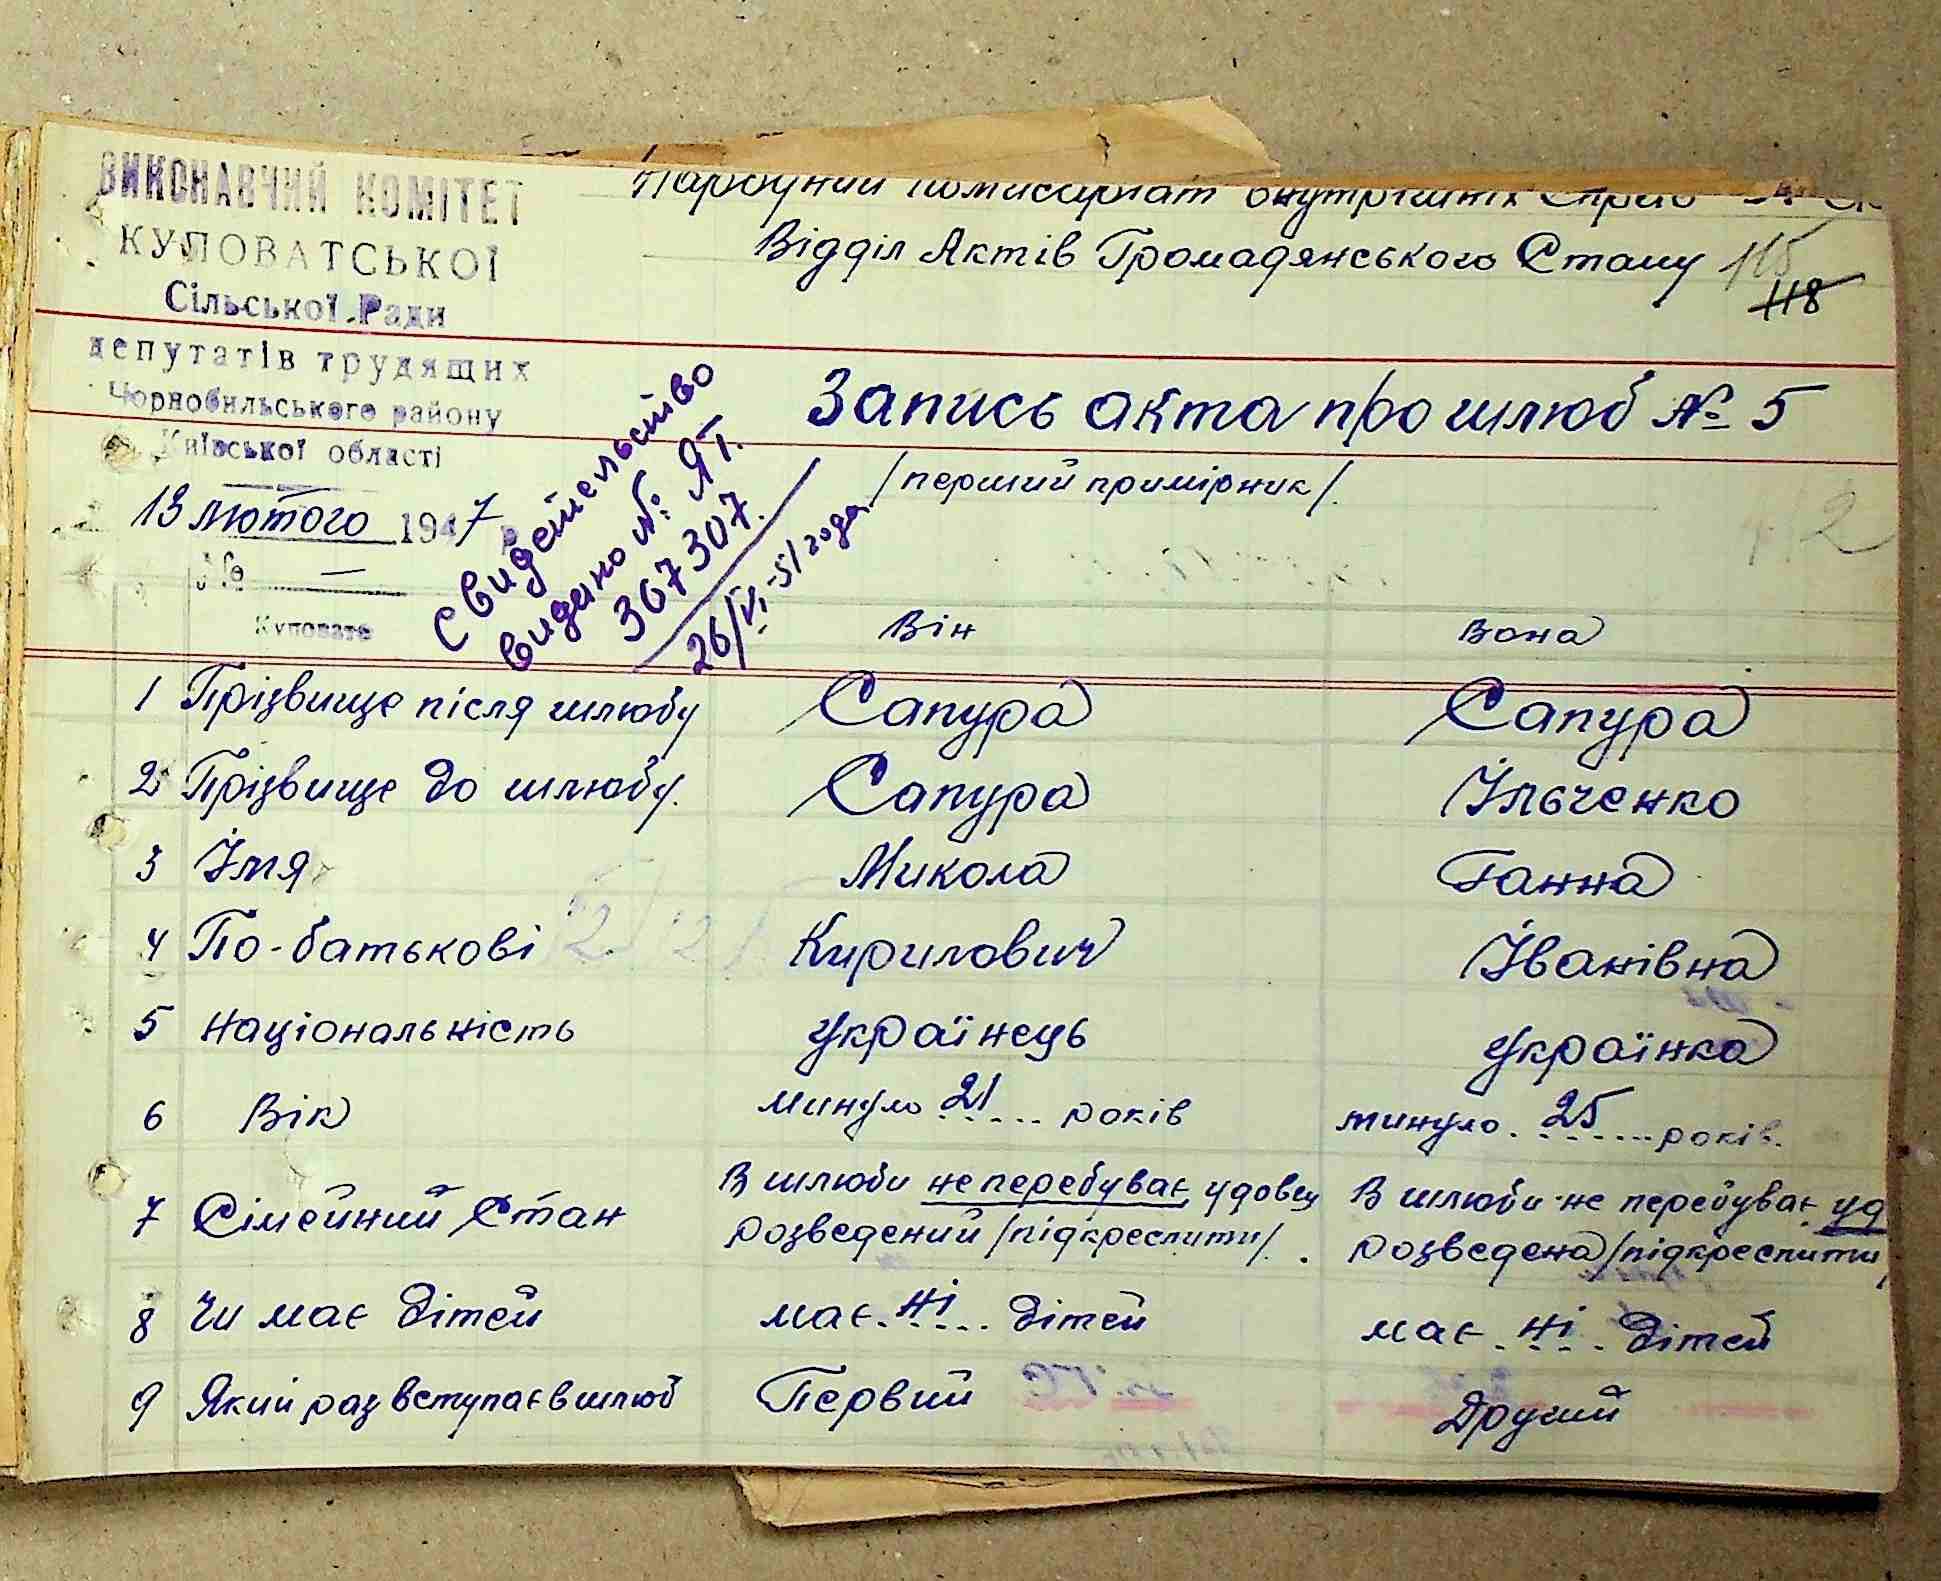 ВИКОНАВЧИЙ КОМІТЕТ
КУПОВАТСЬКОЇ
Сільської Ради
депутатів трудящих
Чорнобильського району
Київської області
13 лютого 1947
№ —
Куповате
Народний Комисаріат Внутрішніх Справ
Відділ Актів Громадянського Стану
115
118
Запись акта про шлюб № 5
/перший примірник/.
Свидетельство
видано №: ЯТ.
367307.
26/VI-51 года
Він Вона
1 Прізвище після шлюбу Сапура Сапура
2 Прізвище до шлюбу. Сапура Ільченко
3 Імя Микола Ганна
4 По-батькові Кирилович Іванівна
5 національність українець українка
6 Вік минуло 21 років минуло 25 років.
7 Сімейний Стан В шлюби не перебуває, удовец В шлюби не перебуває, уд
розведений /підкреслити/. розведена /підкреслити/
8 Чи має дітей має ні дітей має ні дітей
9 Який раз вступає в шлюб Первий Другий